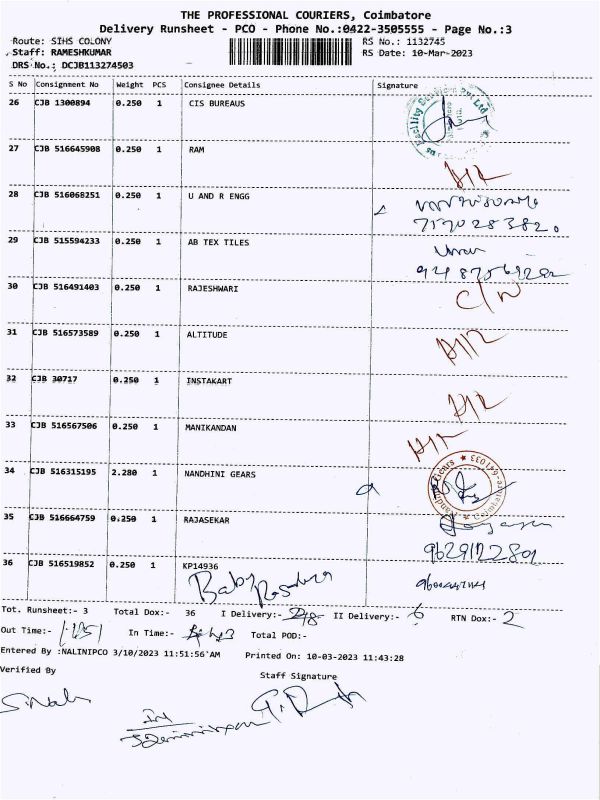 THE PROFESSIONAL COURIERS, Coimbatore
Delivery Runsheet - PCO - Phone No.:0422-3505555 - Page No.:3
Route: SIHS COLONY RS No.: 1132745
Staff: RAMESHKUMAR RS Date: 10-Mar-2023
DRS No.: DCJB113274503
S No Consignment No Weight PCS Consignee Details Signature
26 CJB 1300894 0.250 1 CIS BUREAUS
27 CJB 516645908 0.250 1 RAM
28 CJB 516068251 0.250 1 U AND R ENGG
29 CJB 515594233 0.250 1 AB TEX TILES
30 CJB 516491403 0.250 1 RAJESHWARI C/N
31 CJB 516573589 0.250 1 ALTITUDE
32 CJB 30717 0.250 1 INSTAKART
33 CJB 516567506 0.250 1 MANIKANDAN
34 CJB 516315195 2.280 1 NANDHINI GEARS
35 CJB 516664759 0.250 1 RAJASEKAR
36 CJB 516519852 0.250 1 KP14936
Baby
Tot. Runsheet:- 3 Total Dox:- 36 I Delivery:- II Delivery:- 6 RTN Dox:- 2
Out Time:- In Time:- Total POD:-
Entered By :NALINIPCO 3/10/2023 11:51:56 AM Printed On: 10-03-2023 11:43:28
Verified By Staff Signature